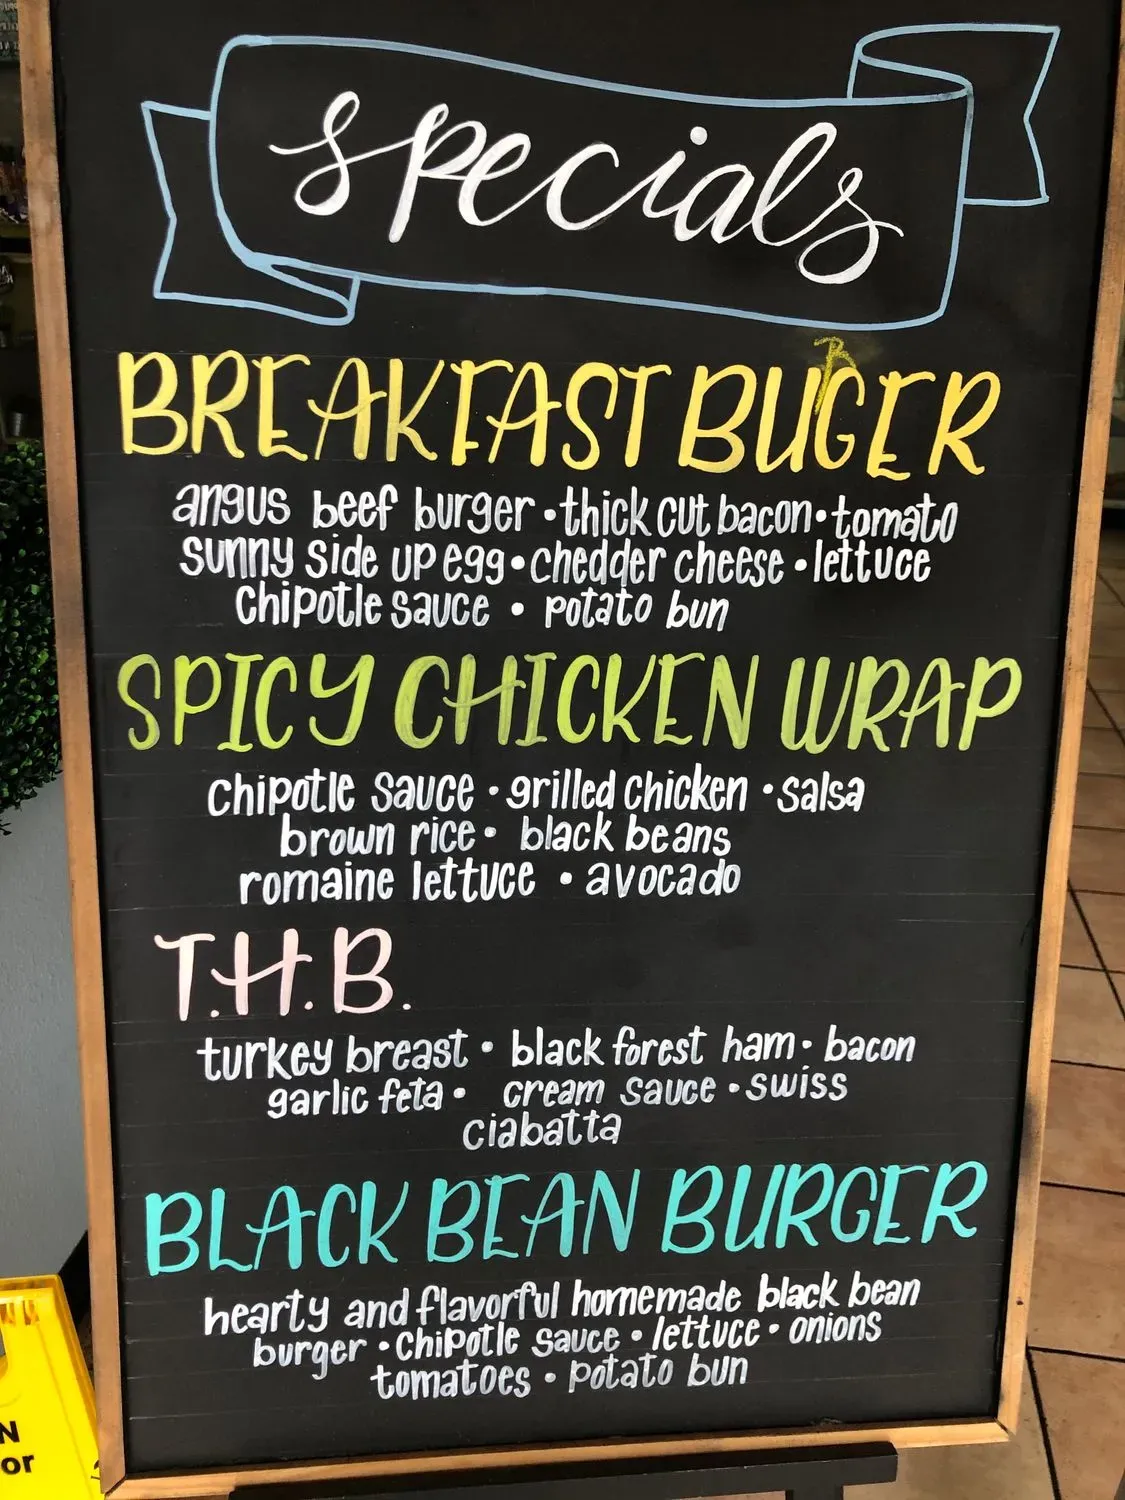 specials
R
BREAKFAST BUGER
angus beef burger • thick cut bacon • tomato
sunny side up egg • chedder cheese • lettuce
chipotle sauce • potato bun
SPICY CHICKEN WRAP
chipotle sauce • grilled chicken • salsa
brown rice • black beans
romaine lettuce • avocado
T.H.B.
turkey breast • black forest ham • bacon
garlic feta • cream sauce • swiss
ciabatta
BLACK BEAN BURGER
hearty and flavorful homemade black bean
burger • chipotle sauce • lettuce • onions
tomatoes • potato bun
N
or